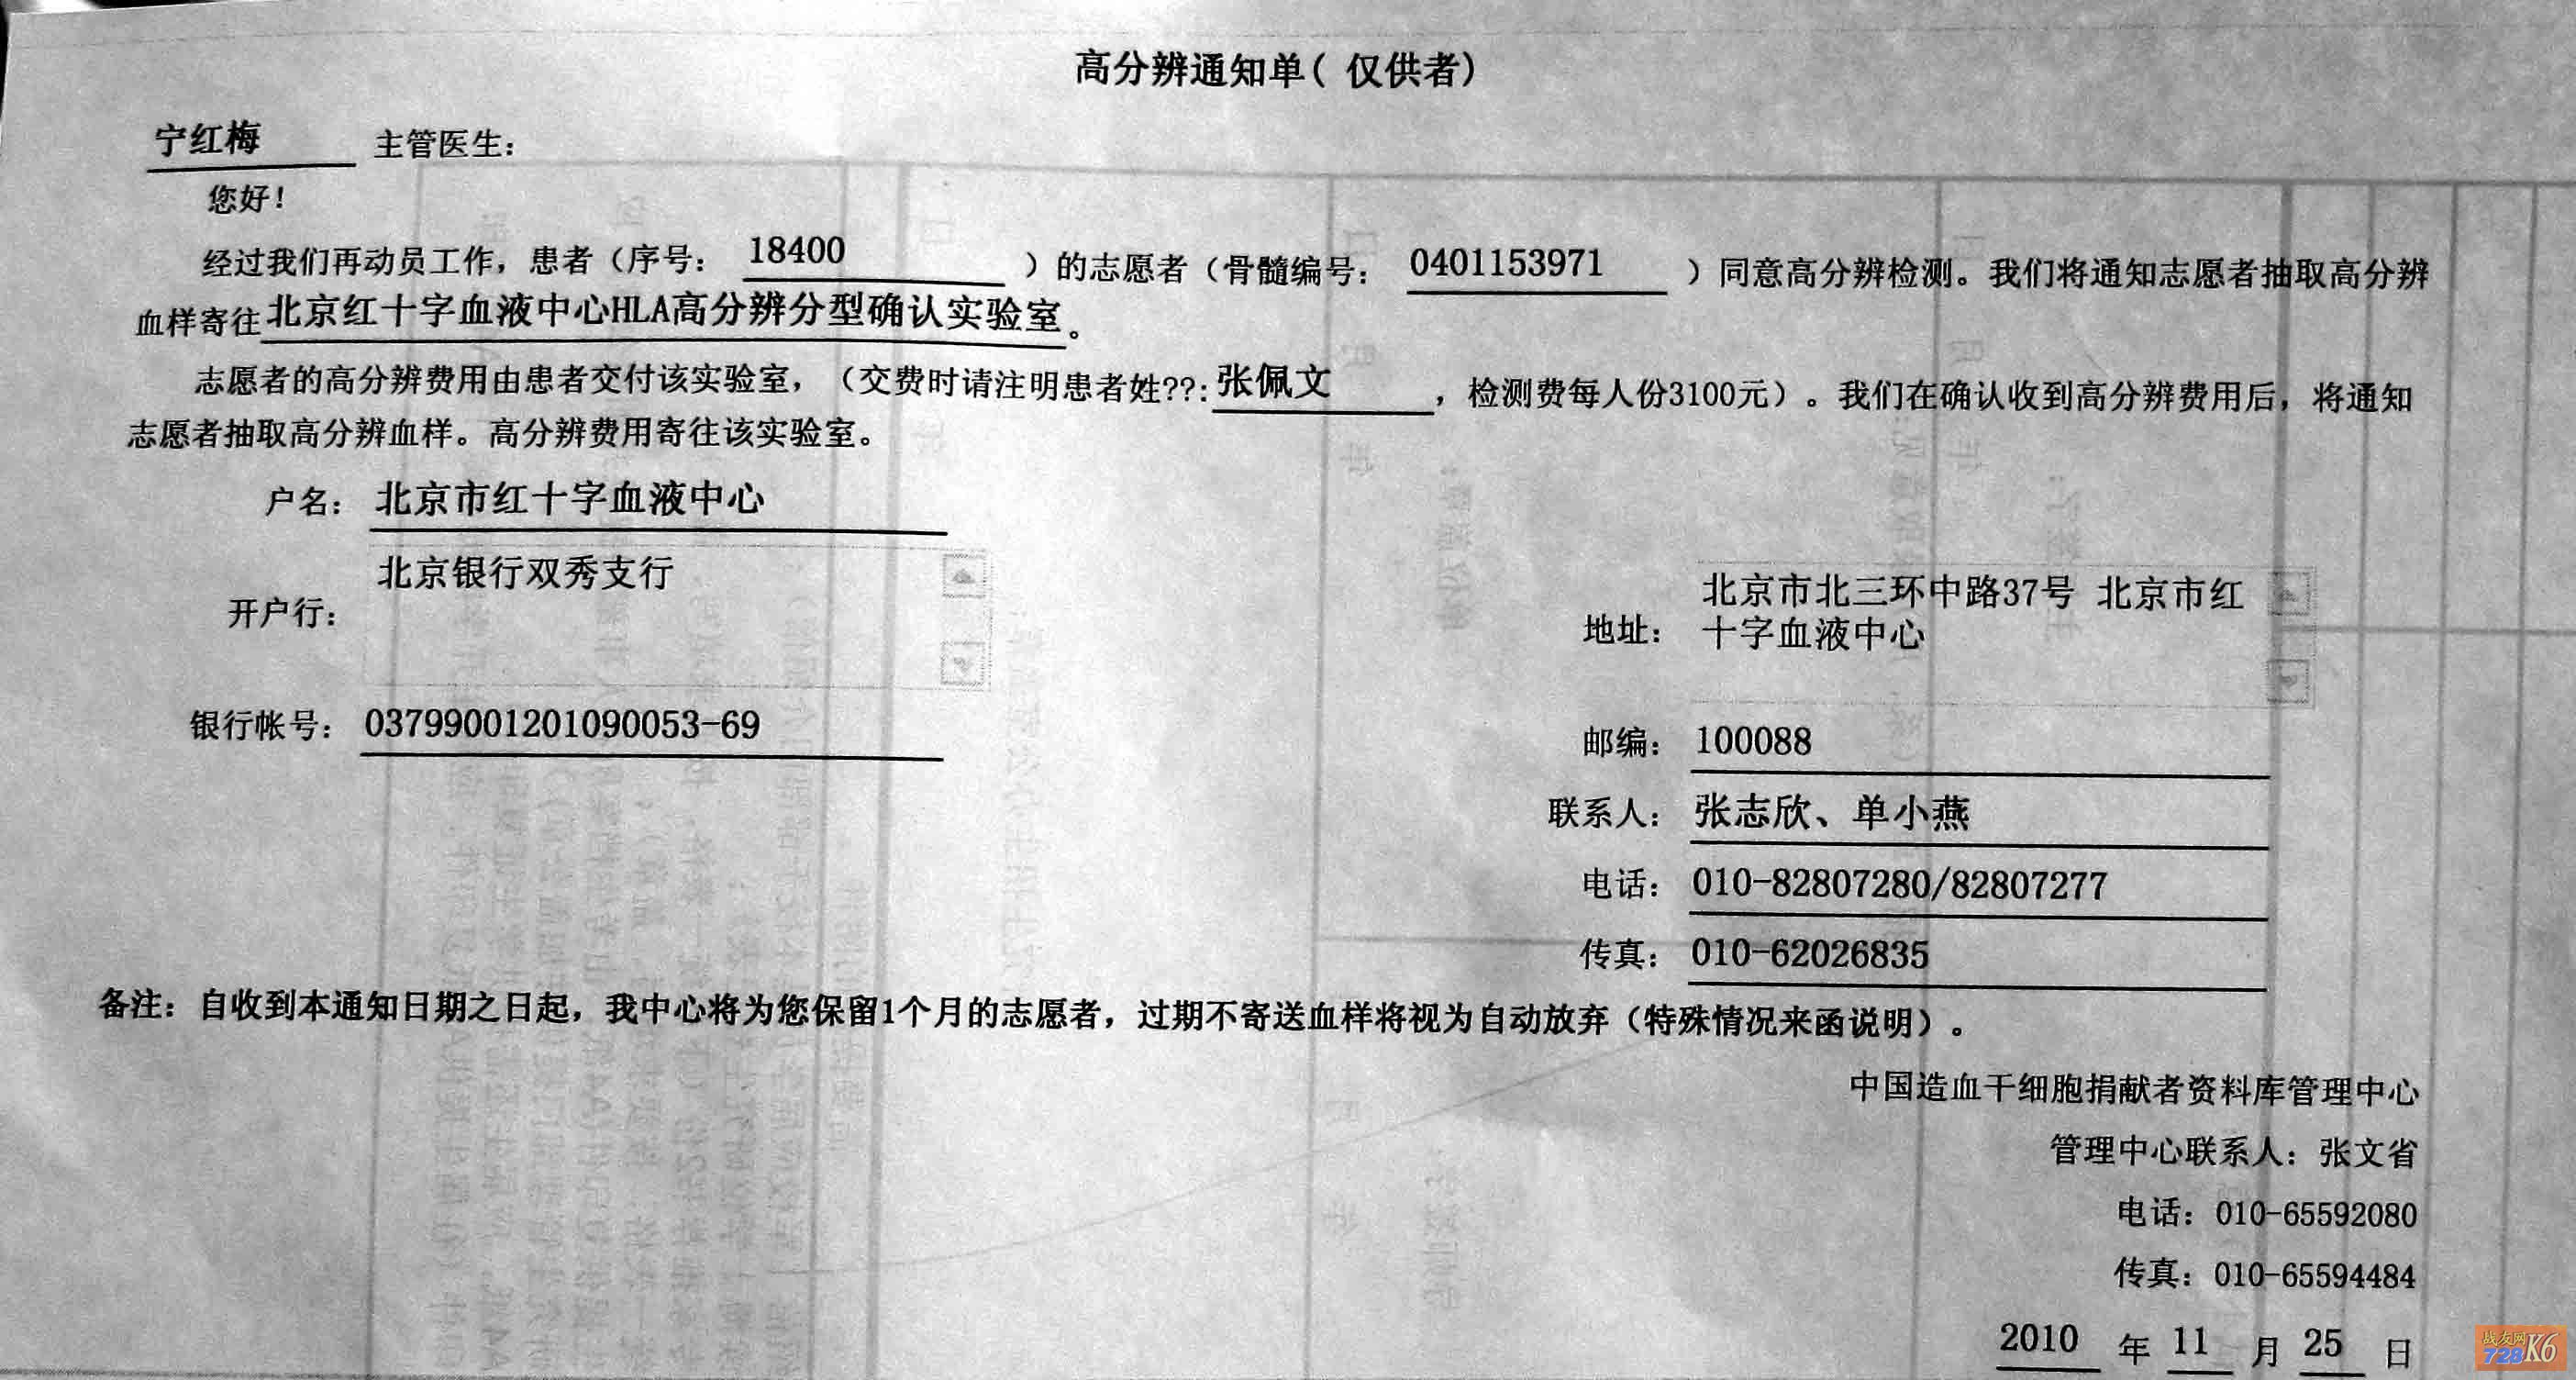 高分辨通知单( 仅供者)
宁红梅 主管医生：
您好！
经过我们再动员工作，患者（序号： 18400 ）的志愿者（骨髓编号： 0401153971 ）同意高分辨检测。我们将通知志愿者抽取高分辨
血样寄往北京红十字血液中心HLA高分辨分型确认实验室。
志愿者的高分辨费用由患者交付该实验室，（交费时请注明患者姓??:张佩文 ，检测费每人份3100元）。我们在确认收到高分辨费用后，将通知
志愿者抽取高分辨血样。高分辨费用寄往该实验室。
户名： 北京市红十字血液中心
开户行： 北京银行双秀支行
银行帐号： 03799001201090053-69
地址： 北京市北三环中路37号 北京市红
十字血液中心
邮编： 100088
联系人： 张志欣、单小燕
电话： 010-82807280/82807277
传真： 010-62026835
备注：自收到本通知日期之日起，我中心将为您保留1个月的志愿者，过期不寄送血样将视为自动放弃（特殊情况来函说明）。
中国造血干细胞捐献者资料库管理中心
管理中心联系人：张文省
电话：010-65592080
传真：010-65594484
2010 年 11 月 25 日
战友网K6
728